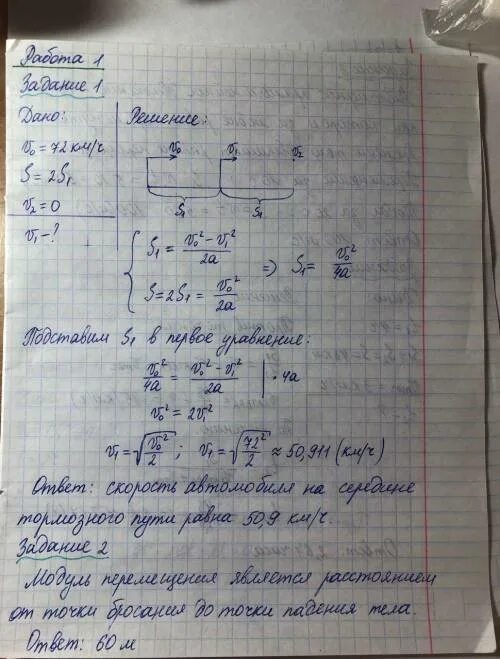 Работа 1
Задание 1
Дано: Решение:
v₀ = 72 км/ч
S = 2S₁
v₂ = 0
v₁ - ?
v₀ v₁ v₂
S₁ S₁
S₁ = (v₀² - v₁²)/2a
S = 2S₁ = v₀²/2a
=> S₁ = v₀²/4a
Подставим S₁ в первое уравнение:
v₀²/4a = (v₀² - v₁²)/2a | · 4a
v₀² = 2v₁²
v₁ = √(v₀²/2) ; v₁ = √(72²/2) ≈ 50,911 (км/ч)
Ответ: скорость автомобиля на середине
тормозного пути равна 50,9 км/ч.
Задание 2
Модуль перемещения является расстоянием
от точки бросания до точки падения тела.
Ответ: 60 м